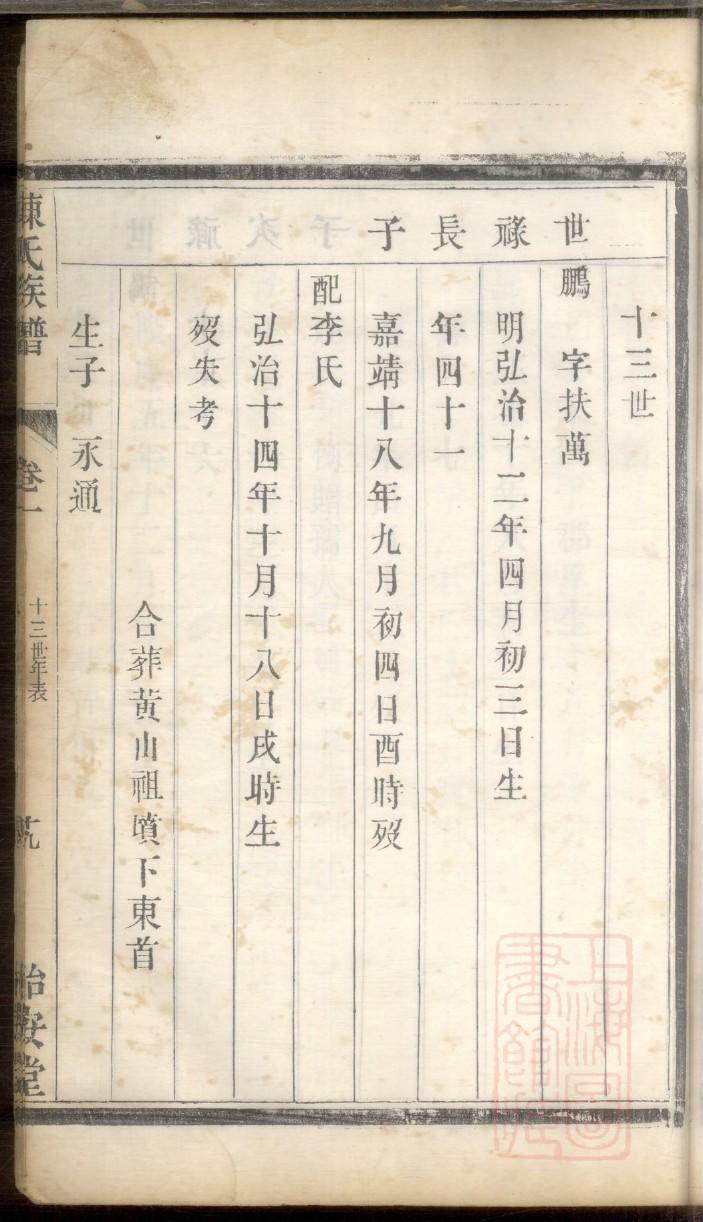 十三世
世鵬 字扶萬
祿 明弘治十二年四月初三日生
長 年四十一
子 嘉靖十八年九月初四日酉時歿
配李氏
弘治十四年十月十八日戌時生
歿失考
合葬黃山祖墳下東首
生子 永通
陳氏族譜 卷一 十三世年表 怡安堂
上海圖書館藏